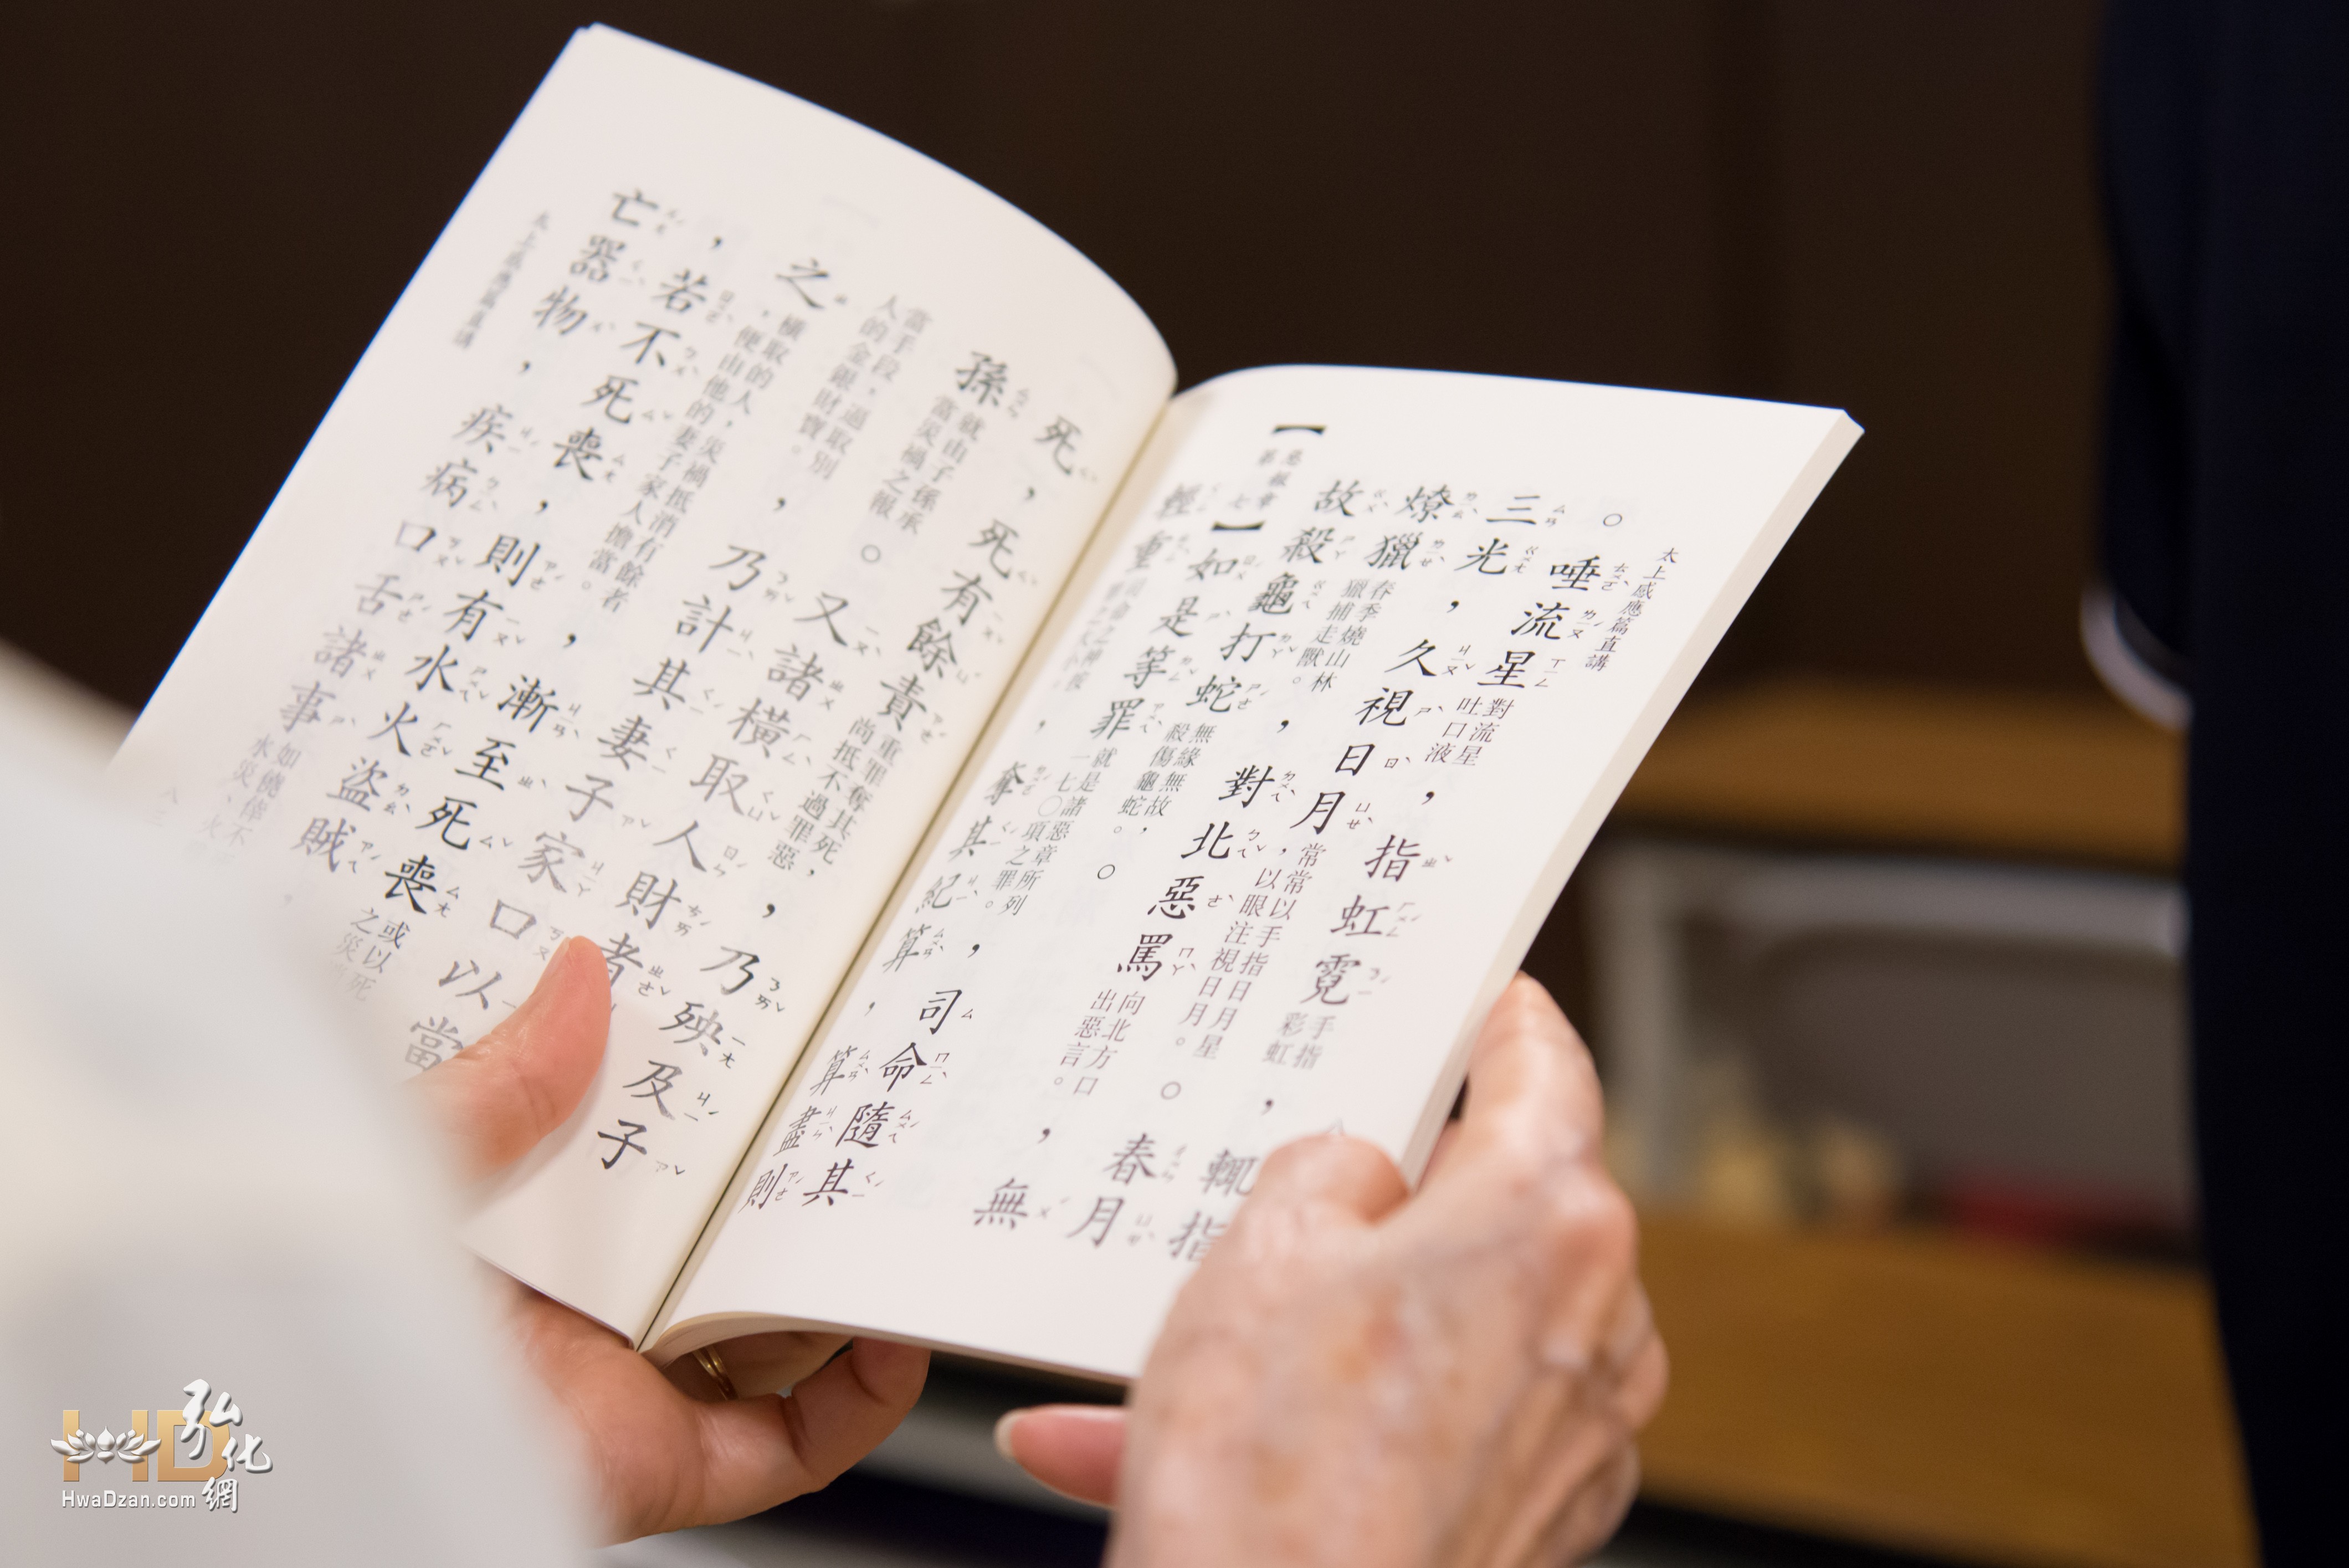 太上感應篇直講
。唾流星對流星吐口液,指虹霓手指彩虹,輒指
三光,久視日月常常以手指日月星,以眼注視日月。。春月
燎獵春季燒山林獵捕走獸。,對北惡罵向北方口出惡言。,無
故殺龜打蛇無緣無故,殺傷龜蛇。。
【惡報章第七】如是等罪就是諸惡章所列一七〇項之罪。,司命隨其
輕重,奪其紀算,算盡則
死,死有餘責重罪奪其死,尚抵不過罪惡,乃殃及子
孫就由子係承當災禍之報。又諸橫取人財者
當手段,逼取別人的金銀財寶。,乃計其妻子家口以當
之橫取的人,災禍抵消有餘者,便由他的妻子家人擔當。,漸至死喪
,若不死喪,則有水火盜賊
亡器物,疾病口舌諸事
太上感應篇直講
HD弘化網
HwaDzan.com